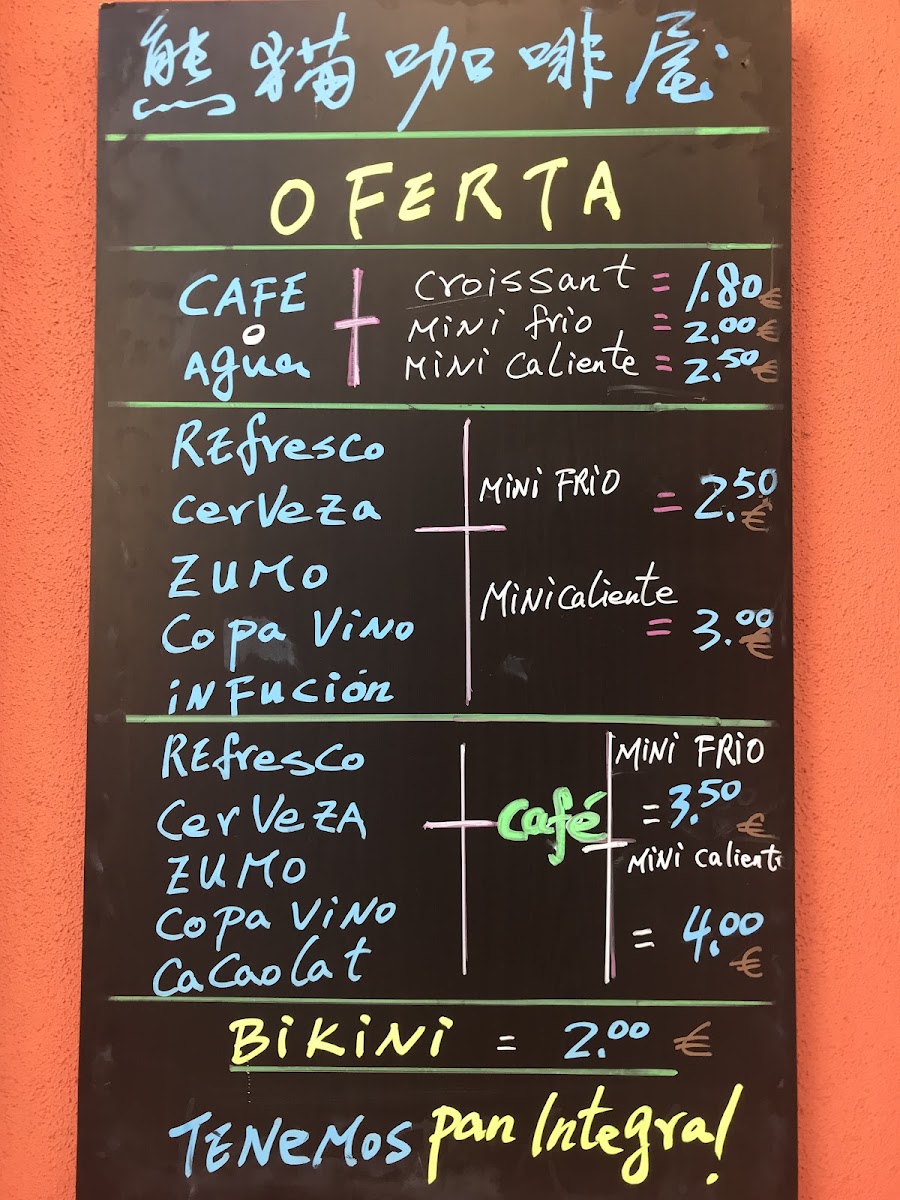 熊猫咖啡屋
OFERTA
CAFE + croissant = 1.80 €
o MiNi frio = 2.00 €
Agua MiNi Caliente = 2.50 €
REfresco
MiNi FRIO = 2.50 €
CerVeZa
ZUMO
MiNicaliente
Copa ViNo = 3.00 €
iNFuCión
REfresco MiNi FRIO
CerVeZA + café + = 3.50 €
ZUMO MiNi Calient
Copa ViNo = 4.00 €
CaCaoLat
BiKiNi = 2.00 €
TENeMOS pan Integral